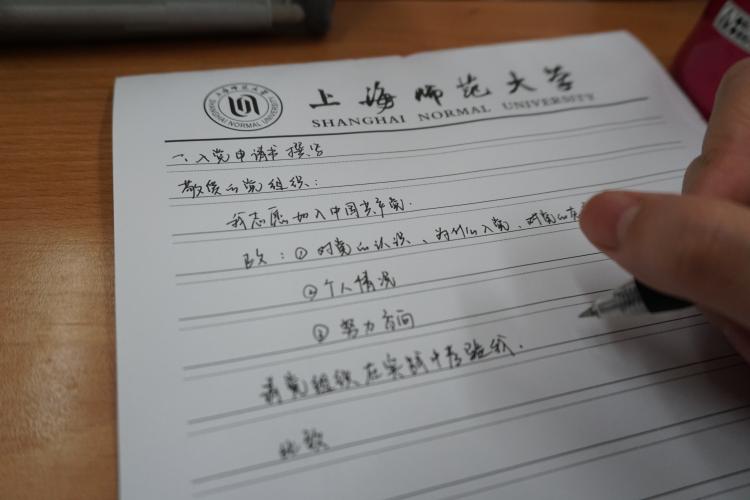 上海师范大学
SHANGHAI NORMAL UNIVERSITY
一、入党申请书撰写
敬爱的党组织：
我志愿加入中国共产党.
：①对党的认识、为什么入党、对党的
②个人情况
③努力方向
请党组织在实践中考验我.
此致